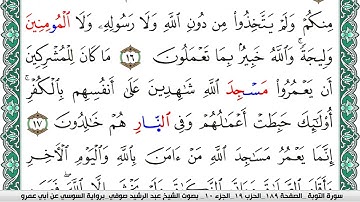 مِنكُمْ وَلَمْ يَتَّخِذُوا۟ مِن دُونِ ٱللَّهِ وَلَا رَسُولِهِۦ وَلَا ٱلْمُومِنِينَ
وَلِيجَةً ۚ وَٱللَّهُ خَبِيرٌۢ بِمَا تَعْمَلُونَ ١٦ مَا كَانَ لِلْمُشْرِكِينَ
أَن يَعْمُرُوا۟ مَسْجِدَ ٱللَّهِ شَٰهِدِينَ عَلَىٰٓ أَنفُسِهِم بِٱلْكُفْرِ ۚ
أُو۟لَٰٓئِكَ حَبِطَتْ أَعْمَٰلُهُمْ وَفِى ٱلنَّارِ هُمْ خَٰلِدُونَ ١٧
إِنَّمَا يَعْمُرُ مَسَٰجِدَ ٱللَّهِ مَنْ ءَامَنَ بِٱللَّهِ وَٱلْيَوْمِ ٱلْءَاخِرِ
سورة التوبة _ الصفحة ١٨٩_ الحزب ١٩_ الجزء ١٠ _ بصوت الشيخ عبد الرشيد صوفي_ برواية السوسي عن أبي عمرو